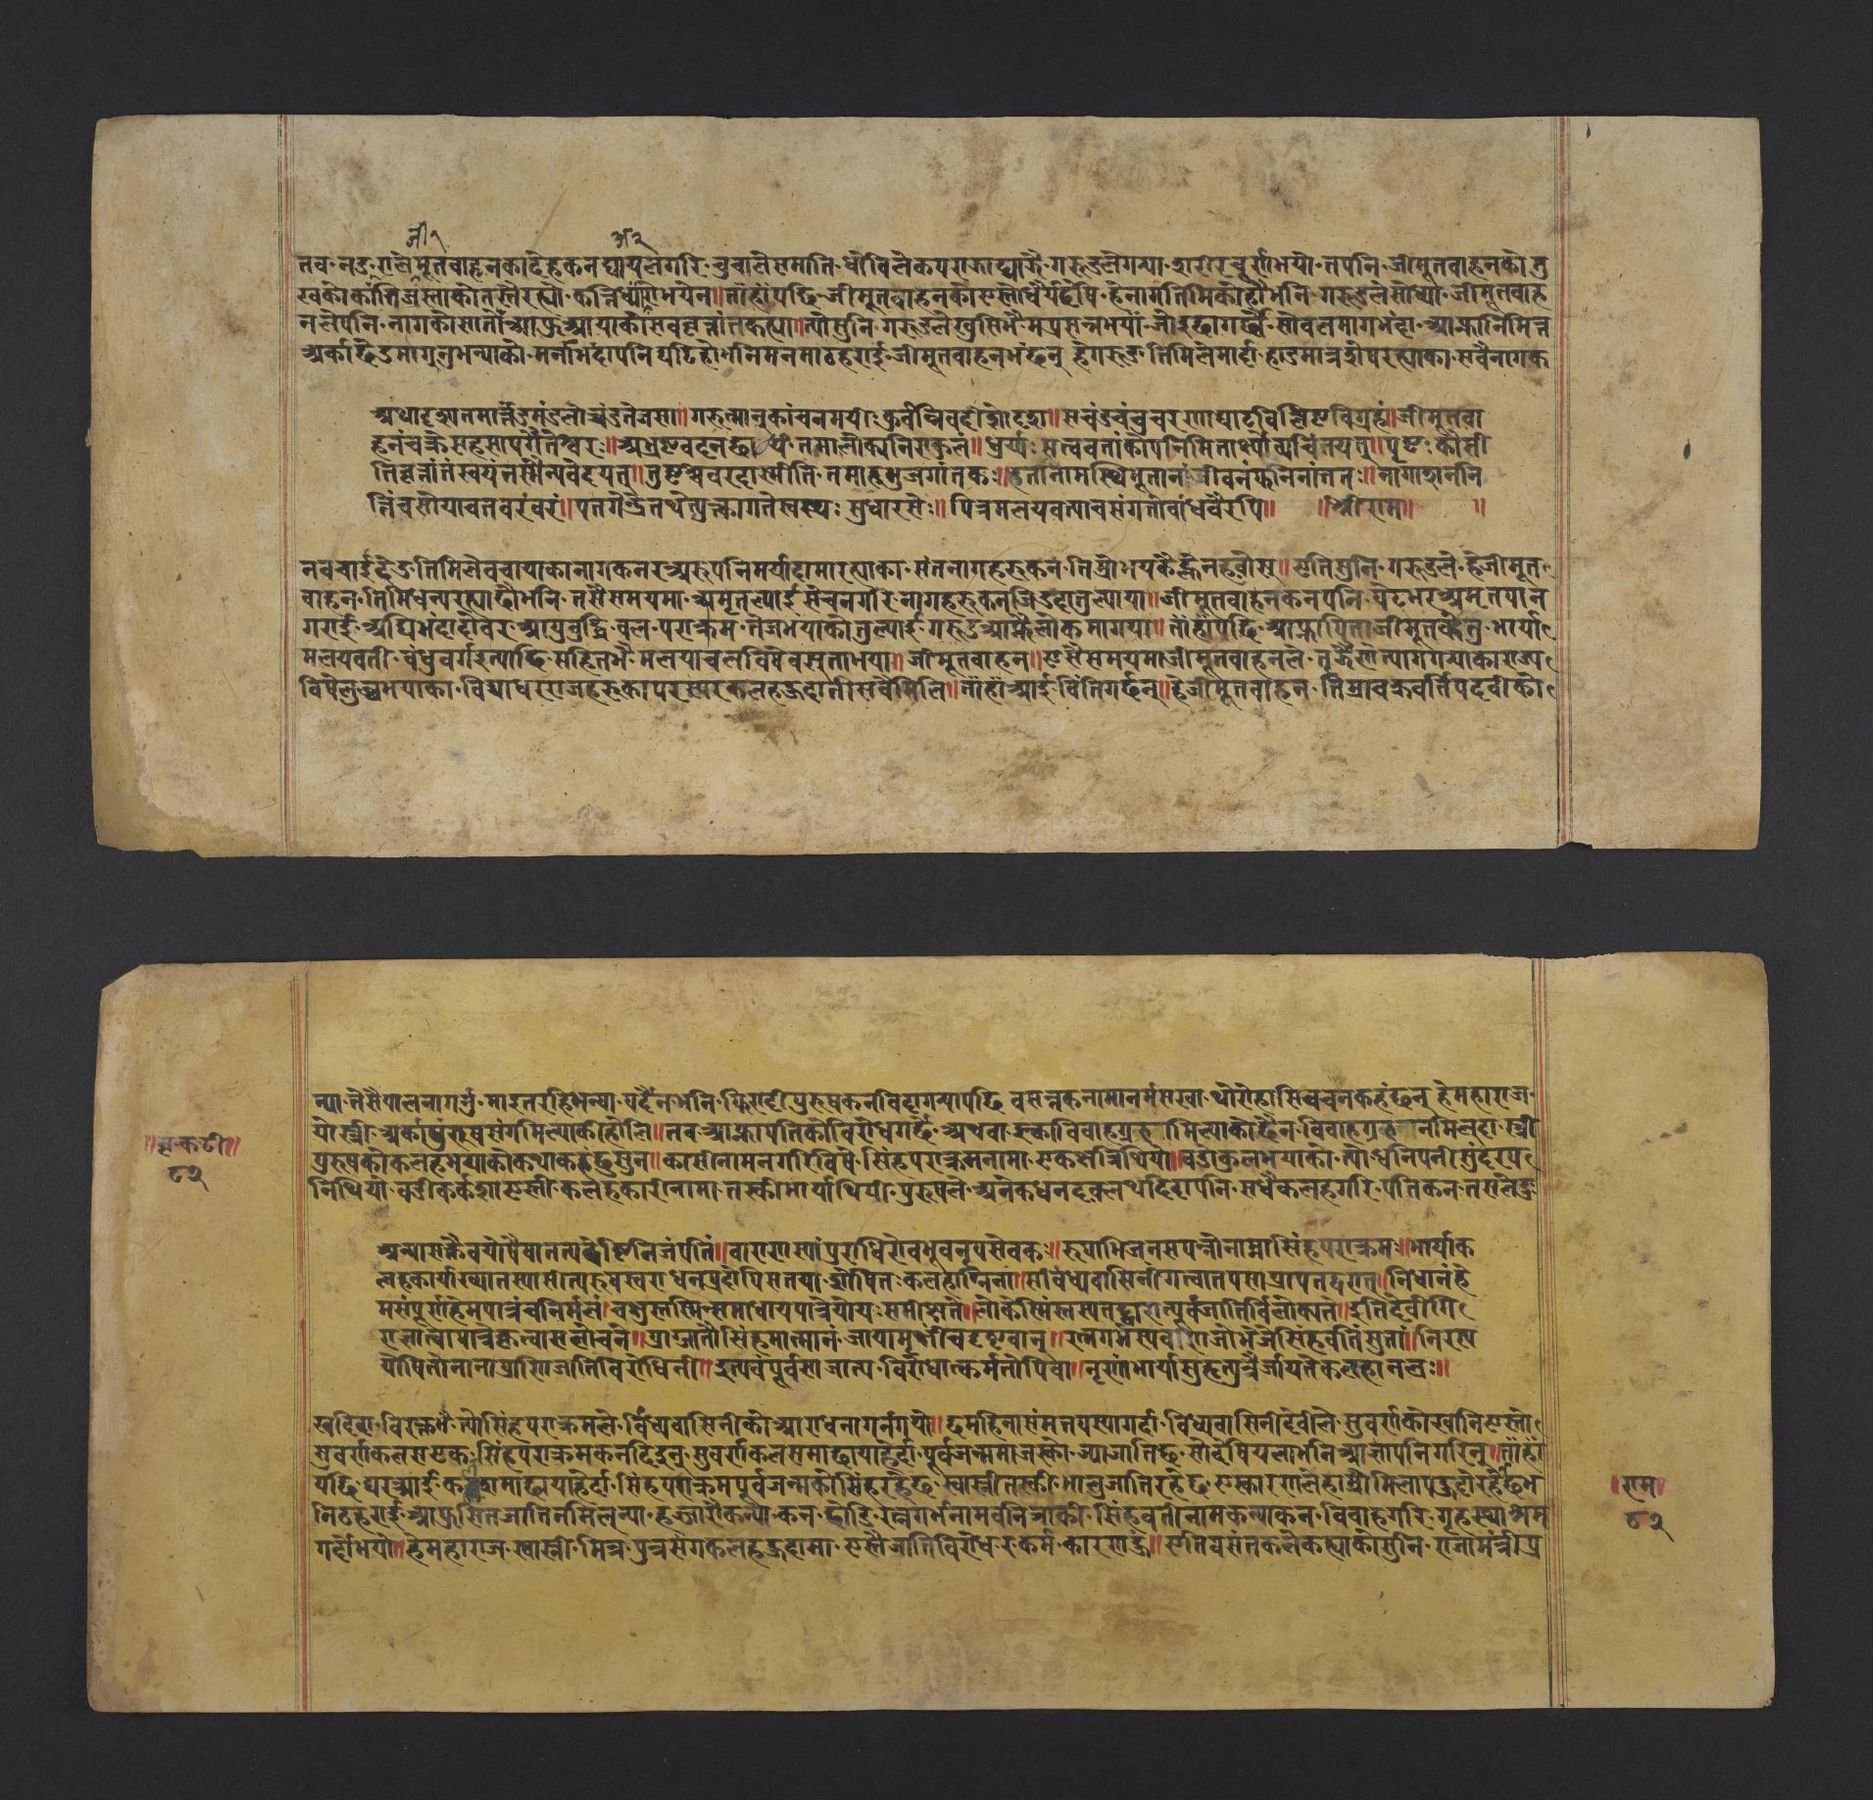 जी१ अं२
तब नङ्ग्राले मूतवाहनका देहकन घ्यायुलेगरि चुचाले समाति धोविले कपराजा घ्याझै गरुडले गया शरीर चूर्णभयो तपनि जीमूतवाहनको मु
खको कांति जस्ताको तस्तै रह्यो कन्निर्ध्यांगी भयेन॥ ताहांपछि जीमूतवाहनको एस्तो धैर्य देषि हे नाग तिमि को हौ भनि गरुडले सोध्यो जीमूतवाह
नले पनि नागको सातो आफु आयाको सब वृत्तांत कह्या॥ त्यो सुनि गरुडले खुसि भै म प्रसन्न भयां जो इछा गर्छौ सो वल माग भंदा आफ्ना निमित्त
अर्का छेउ मागुनु भन्याको मर्नाभंदा पनि घटि हो भनि मनमा ठहराई जीमूतवाहन भंछन् हे गरुड तिमिले मार्दा हाड मात्र शेष रह्याका सबै नाग क
अथादृश्यत मार्त्तंडमंडलोच्चंडतेजसा॥ गरुत्मान् कांचनमयीः कुर्वन्निव दशो दश॥ सचंडचंचुचरणाघातविश्लिष्टविग्रहं॥ जीमूतवा
हनं चक्रे सहसा पन्नगेश्वरः॥ अभ्रष्टवदनछायं तमालोक्य निराकुलं॥ धुर्य्यः सत्ववतां कोपनिमितार्थ्यो व्यचिंतयत्॥ पृष्टः कोसी
ति वृत्तांतं स्वयं तस्मै न्यवेदयत्॥ तुष्टश्च वरदास्मीति तमाह भुजगांतकः॥ हतानामस्थिभूतानां जीवनं फनिनां ततः॥ नागाशननि
त्तिंच सो यावत वरं वरं॥ पतगेंद्रे तथेत्युक्त्वागते स्वस्थः सुधारसैः॥ पित्रमलयवत्या च संगतो बांधवैरपि॥ ॥ श्रीराम॥ ॥
न बचाईदेउ तिमिले बचायाका नागकनर अरुपनि मर्यादामा रह्याका संत नागहरुकन तिम्रो भय केहै नहवोस्॥ एति सुनि गरुडले हे जीमूत
वाहन तिमि धन्य रह्याछौ भनि तसै समयमा अमृत ल्याई संचन गरि नागहरुकन जिउदा तुल्याया॥ जीमूतवाहनकन पनि पेटभर अमृतपान
गराई अघि भंदा दोवर आयु बुद्धि वल पराक्रम तेज भयाको तुल्याई गरुड आफ्नै लोकमा गया॥ ताहांपछि आफ्ना पिता जीमूतकेतु भार्या
मलयवती बंधुवर्ग इत्यादि सहित भै मलयाचल विषे बस्ता भया॥ जीमूतवाहन॥ एसै समयमा जीमूतवाहनले तृझै त्याग गर्याका राज्य
विषे लुब्ध भयाका विद्याधर राजहरुका परस्पर कलह हुदा ती सबै मिलि॥ ताहां आई विंति गर्छन्॥ हे जीमूतवाहन तिम्रा चक्रवर्ति पदवीको
न्या तेसै पालना गर्नु मार त रहि भन्या घर्दैन भनि फिरादी पुरुषकन विदा गर्यापछि वसन्तक नामा नर्मसखा थोरो हासि वचन कहंछन् हे महाराज
यो स्त्री अर्का पुरुष संग मिल्याकी होलि॥ तब आफ्ना पतिको विरोध गर्छे अथवा इनका विवाह ग्रह नमिल्याको छैन विवाह ग्रह नमिल्दा स्त्री
पुरुषको कलह भयाको कथा कहंछु सुन॥ कासी नाम नगरि विषे सिंहपराक्रम नामा एक क्षेत्रि थियो॥ बडा कुल भयाको त्यो धनि पनी सुंदर प
नि थियो बडी कर्कशा एस्ती कलहकारी नामा तस्की भार्या थियी पुरुषले अनेक धन दव्लथ दिदा पनि सधै कलह गरि पतिकन तर्साउ
॥ व्र॰ कटी॥
८२
अन्यासक्तैव योषैषा तत्पद्वेष्टि निजं पतिं॥ वाराणस्यां पुराधिरो बभूव नृपसेवकः॥ रूपाभिजनसंपन्नो नाम्ना सिंहपराक्रमः॥ भार्या क
लहकार्याख्या तस्यासीत्परुषस्वरा धनप्रदोपि सतया द्वेषितः कलहाग्निना॥ सविंध्यवासिनीं गत्वा तपसा प्राप तद्वरात्॥ निधानं हे
मसंपूर्णं हेमपात्रं च निर्मलं॥ चक्षुस्तस्मिन्समाधाय पात्रे यो यः समीक्षते॥ लोकेस्मिंस्तस्य तद्द्वारात्पूर्वजातिर्विलोक्यते॥ इति देवीगि
रा लात्वा पात्रे कृत्वा स लोचने॥ प्राग्जातौ सिंहमात्मानं जायामृक्षीं च दृष्टवान्॥ रत्नगर्भस्य वणिजो भेजे सिंहवतीं सुतां॥ निरस्य
योषितो नाना प्राणिजातिविरोधिनी॥ इत्येवं पूर्वसाजात्य विरोधात्कर्मतोपि वा॥ नृणां भार्यासुहृत्पुत्रैर्जायते कलहानलः॥
ख दिदा विरक्त भै त्यो सिंहपराक्रमले विंध्यवासिनीको आराधना गर्न गयो॥ छ महिना संम तपस्या गर्दा विंध्यवासिनी देवीले सुवर्णको खानि एस्तो
सुवर्ण कलस एक सिंहपराक्रमकन दिइनु सुवर्ण कलसमा छाया हेर्दा पूर्वजन्ममा जस्को ज्या जाति छ सो देषियला भनि आज्ञा पनि गरिन्॥ ताहां
पछि घर आई कलशमा छाया हेर्दा सिंहपराक्रम पूर्वजन्मको सिंह रहेछ स्वास्नी तस्की भालु जाति रहेछ एस्कारणले हाम्रो मिलाप हुदो रहेनछ भ
नि ठहराई आफुसित जाति नमिल्न्या हजारौ कन्या कन छोडि रत्नगर्भ नाम वनिञाकी सिंहवती नाम कन्याकन विवाह गरि गृहस्थाश्रम
गर्दो भयो॥ हे महाराज स्वास्नी मित्र पुत्र संग कलह हुदामा एस्तै जाति विरोध र कर्म कारण हुं॥ एति वसंतकले कह्याको सुनि राजा मंत्री प्र
॥ राम॥
८२